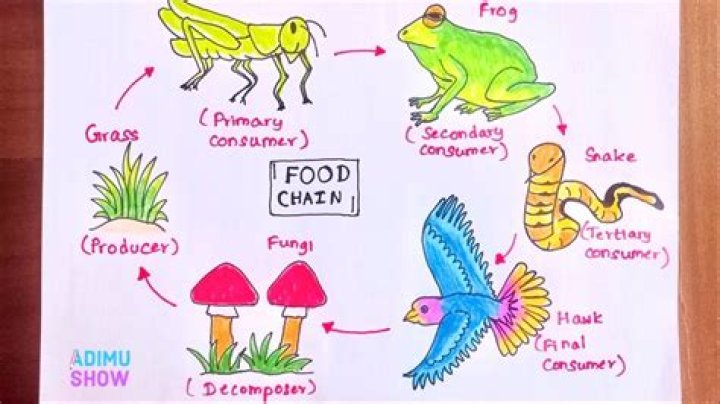 Frog
(Primary
consumer)
(Secondary
consumer)
Grass
Snake
FOOD
CHAIN
(Tertiary
consumer)
(Producer)
Fungi
Hawk
(Final
Consumer)
(Decomposer)
ADIMU
SHOW